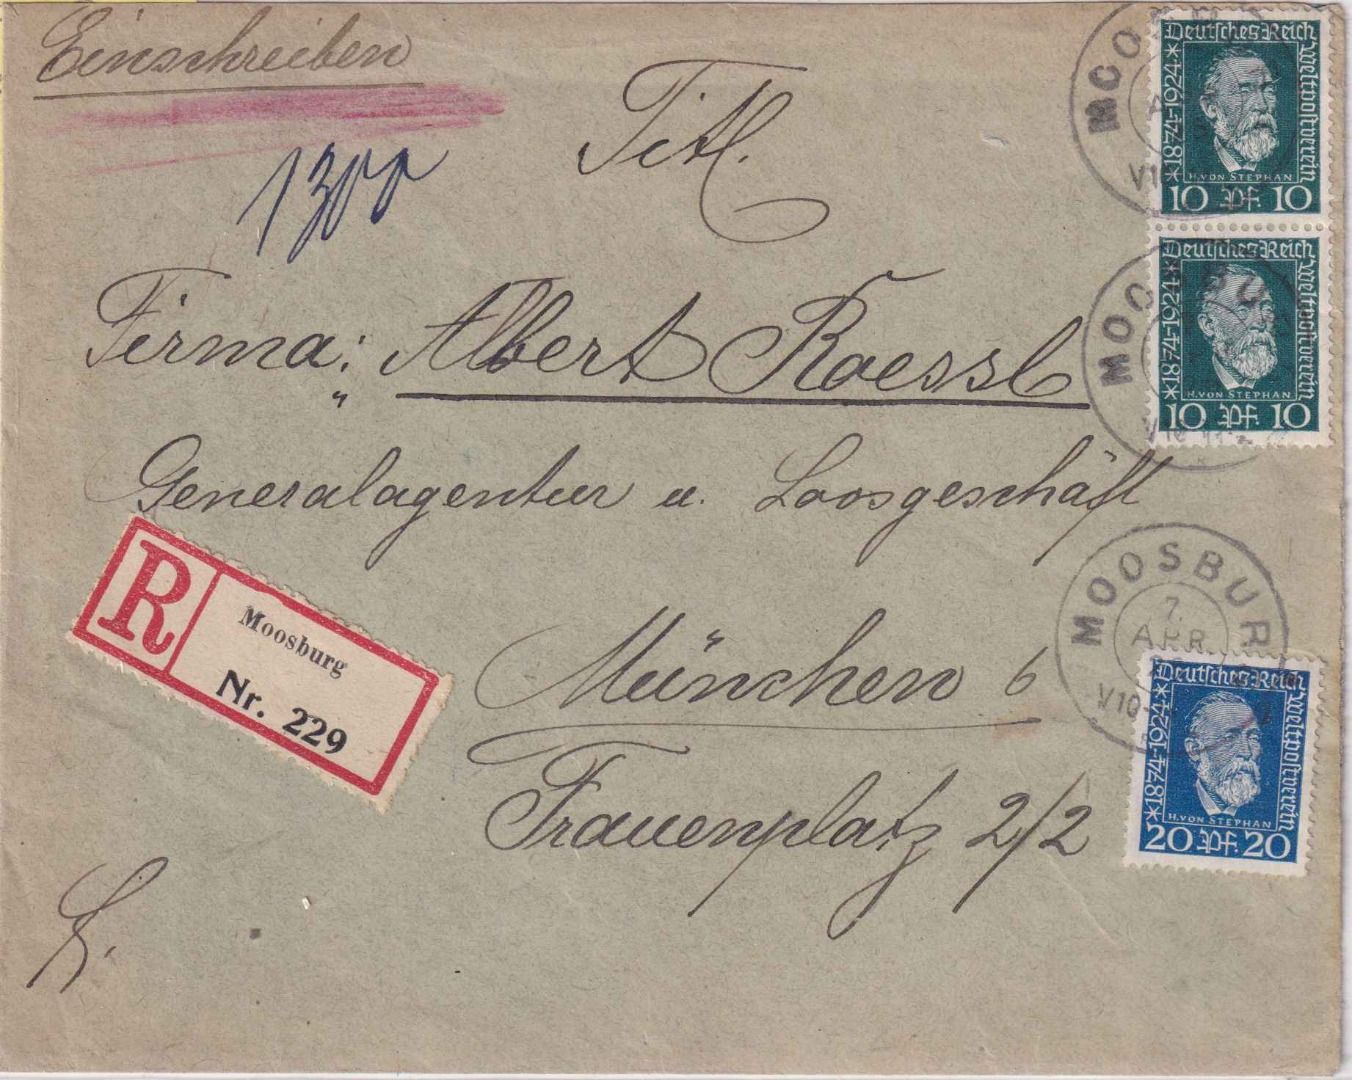 Einschreiben
1300
Titl.
Firma: Albert Roessl
Generalagentur u. Loosgeschäft
München 6
Frauenplatz 2/2
R
Moosburg
Nr. 229
Deutsches Reich
*1874-1924*
Weltpostverein
H. VON STEPHAN
10 Pf. 10
MOO
Deutsches Reich
*1874-1924*
Weltpostverein
H. VON STEPHAN
10 Pf. 10
MOO
MOOSBUR
7.
APR
V10-
Deutsches Reich
*1874-1924*
Weltpostverein
H. VON STEPHAN
20 Pf. 20